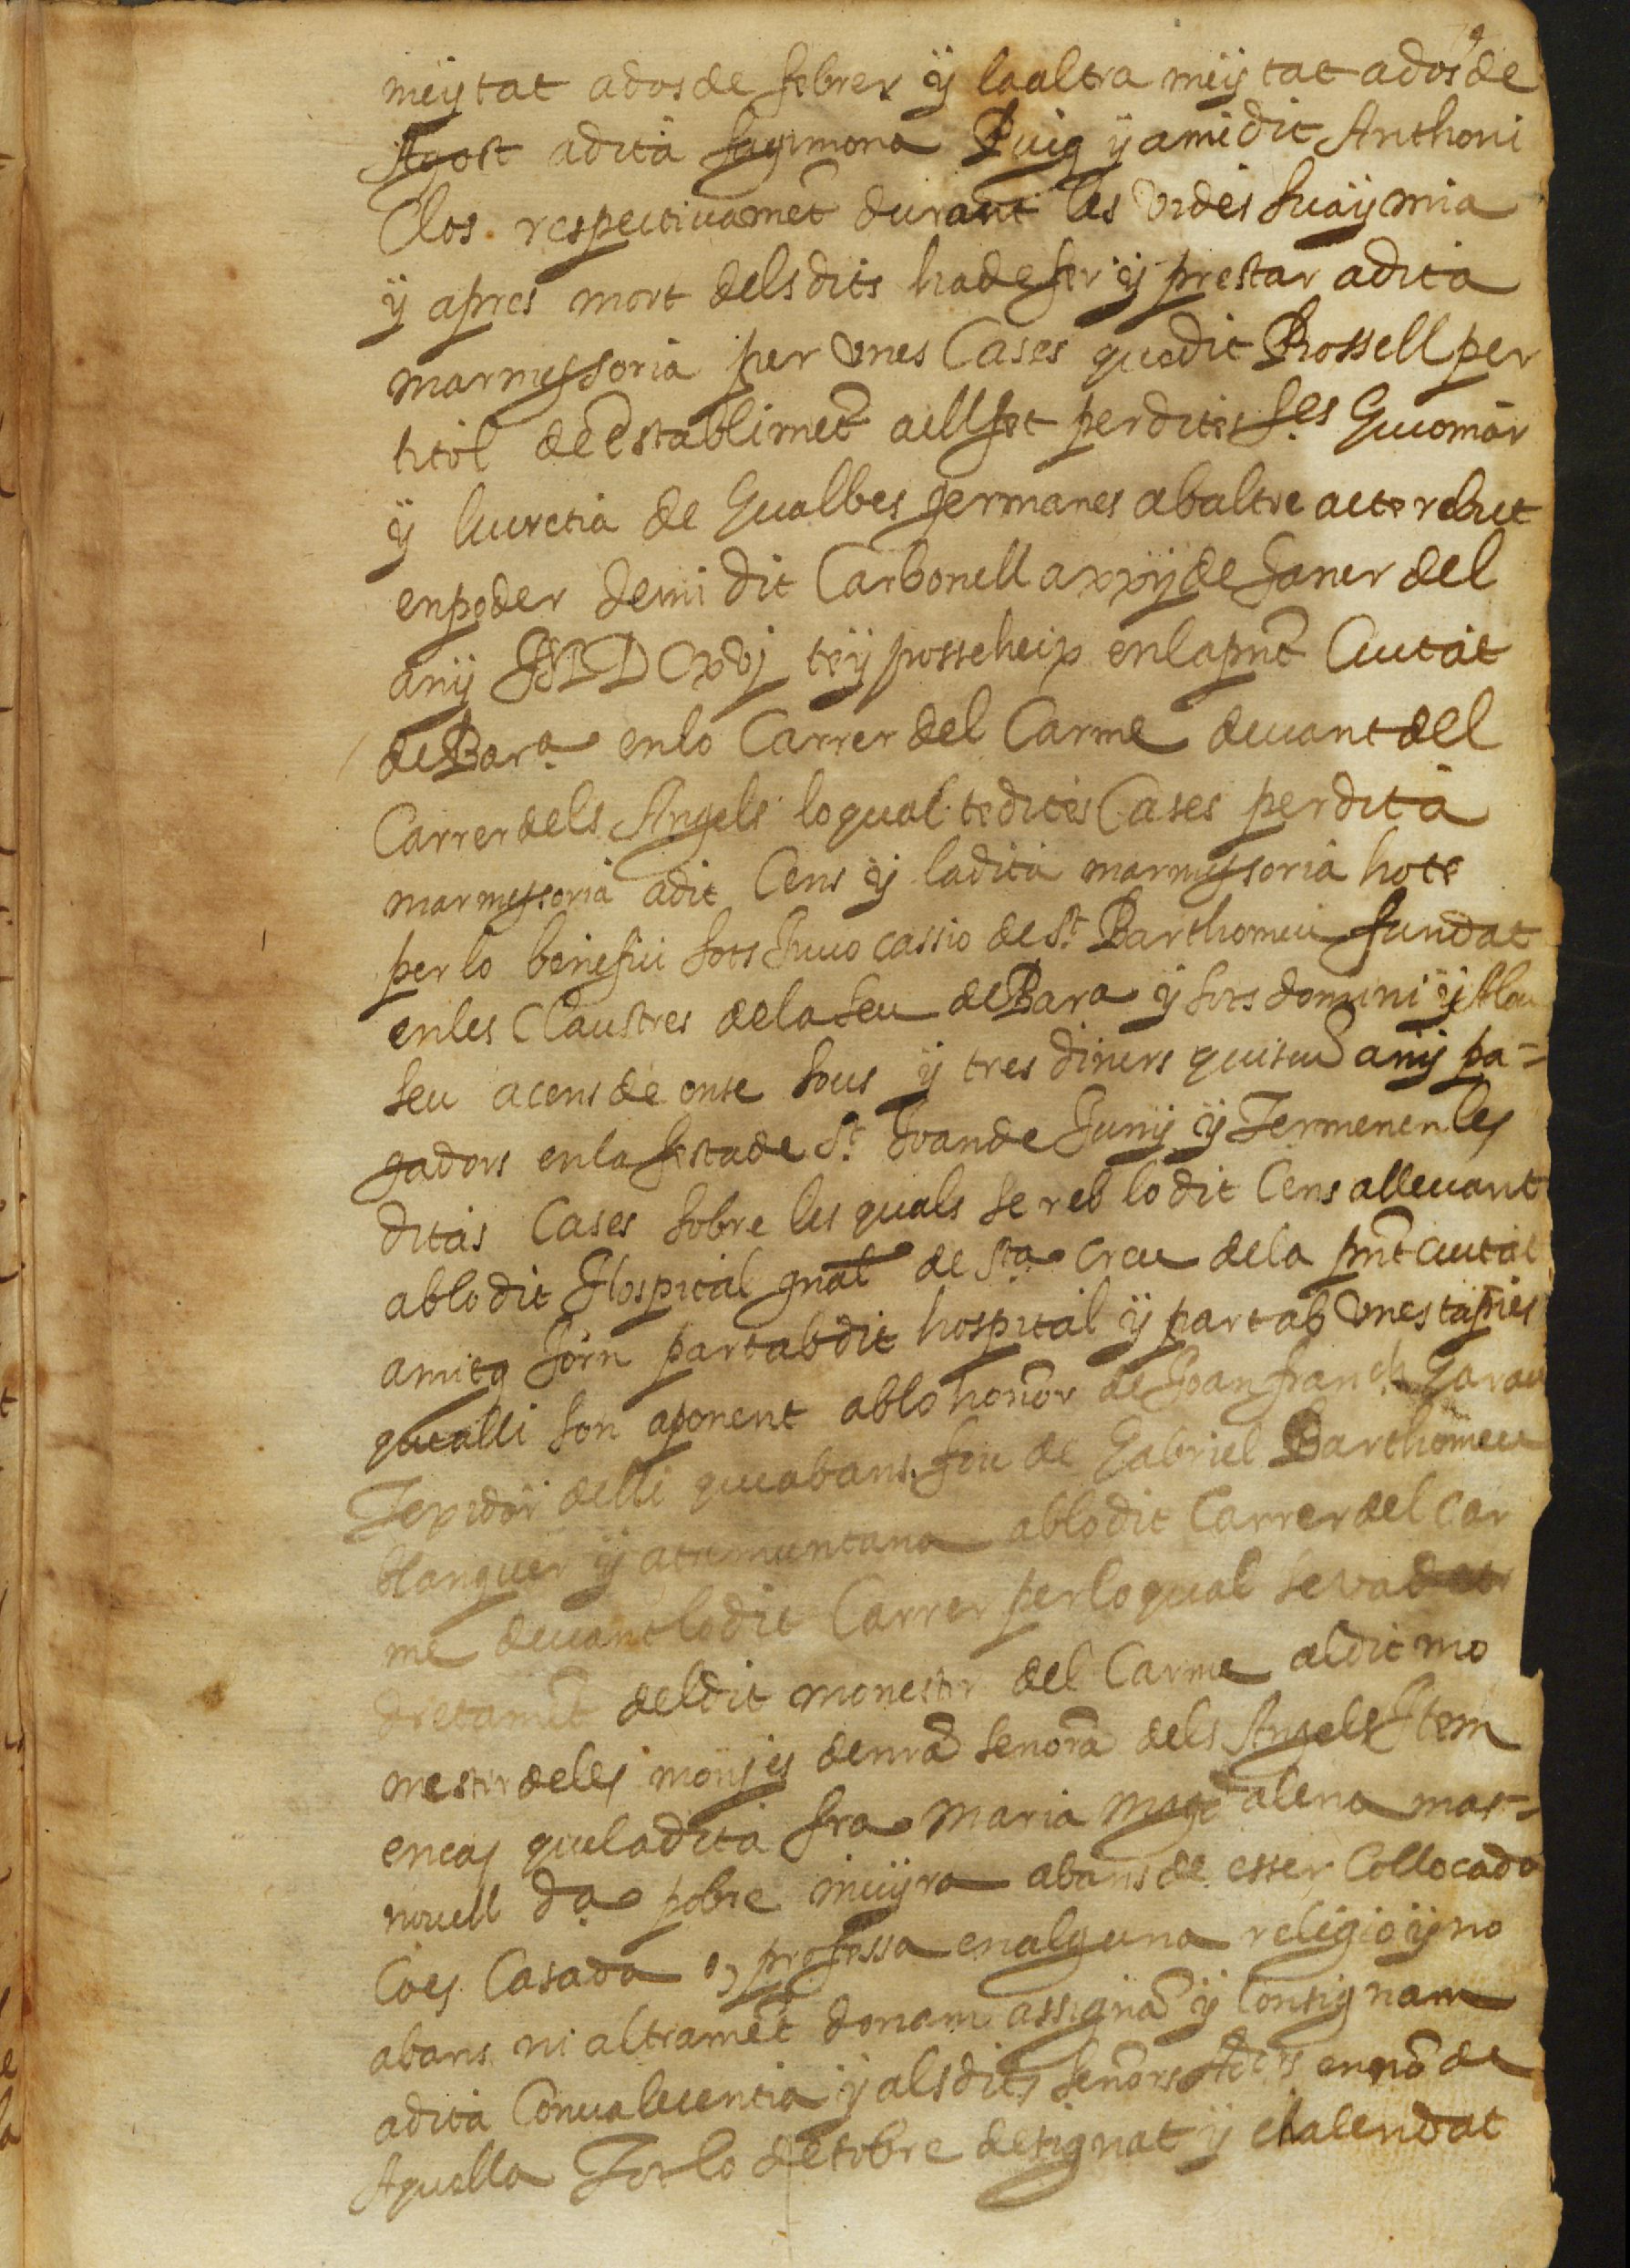 meytat a dos de febrer y la altra meytat a dos de
Agost a dita Sagimona Puig y a mi dit Anthoni
Clos respectivamēt durant les vides sua y mia
y apres mort dels dits ha de fer y prestar a dita
marmessoria per unes Cases que dit Rossell per
titol de establimēt a ell fet per dites s.es Guiomar
y lucretia de Gualbes germanes ab altre acte rebut
en poder de mi dit Carbonell a xxij de Janer del
any MDCxvj te y posseheix en la pnt̄ Ciutat
de Bar.a en lo Carrer del Carme devant del
Carrer dels Angels lo qual te dites Cases per dita
marmessoria a dit Cens y la dita marmessoria ho te
per lo benefici sots invocassio de St. Barthomeu fundat
en les Claustres de la Seu de Bara y sots domini y Alou
seu a cens de onse sous y tres diners quiscū any pa=
gadors en la festa de St. Joan de Juny y Termenen les
ditas Cases sobre les quals se reb lo dit Cens a llevant
ab lo dit Hospital gnāl de sta. Creu de la pnt̄ ciutat
a mitg jorn part ab dit hospital y part ab unes tapies
que alli son a ponent ab lo honor de Joan franch Garau
Texidor de lli que abans fou de Gabriel Barthomeu
blanquer y a tramuntana ab lo dit Carrer del Car
me devant lo dit Carrer per lo qual se va
dretamēt del dit monestir del Carme al dit mo
nestir de les monjes de nrā senorā dels Angels Item
en cas que la dita sra Maria Magdalena mar=
novell da. pobre muyra abans de esser Collocada
Co es Casada o, professa en alguna religio y no
abans ni altramēt donam assignā y Consignam
a dita Convalecentia y als dits senōrs Adors en nō de
Aquella Tot lo de sobre designat y chalendat